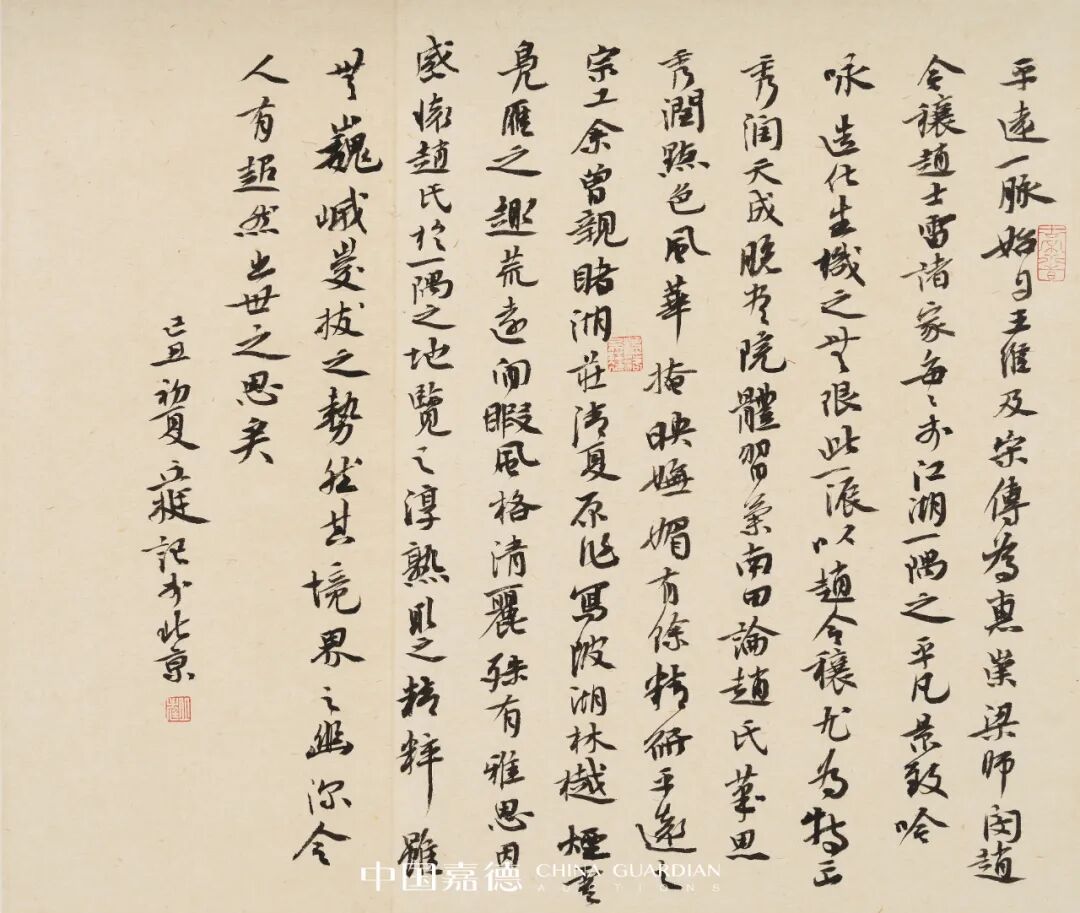 平遠一脉始自王維及宋傳為惠崇梁師閔趙
令穰趙士雷諸家每每於江湖一隅之平凡景致吟
咏造化生機之無限此一派以趙令穰尤為特立
秀潤天成脱盡院體習氣南田論趙氏華思
秀潤點色風華掩映嫵媚有餘精研平遠之
宗工余曾親睹湖莊清夏原作寫陂湖林樾煙雲
鳧雁之趣荒遠閒暇風格清麗殊有雅思因
感懷趙氏於一隅之地覽之淳熟取之精粹雖
無巍峨峻拔之勢然其境界之幽深令
人有超然出世之思矣
己丑初夏 記於北京
中国嘉德 CHINA GUARDIAN
AUCTIONS